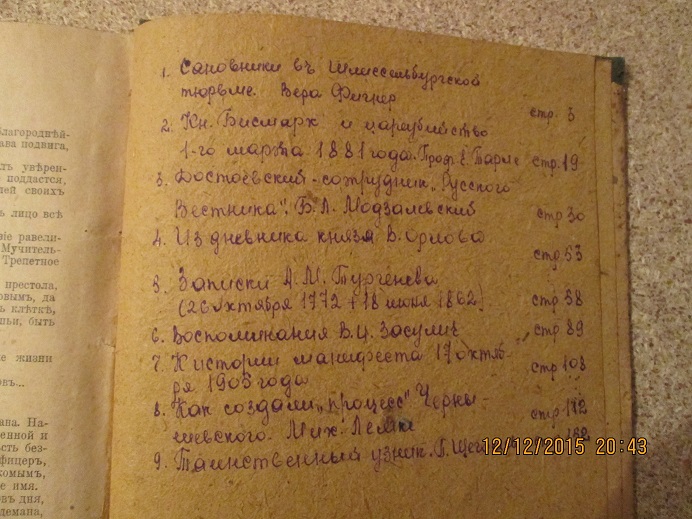 благороднѣй-
ава подвига,
ъ увѣрен-
поддастся,
лей своихъ
ь лицо всѣ
равели-
Мучитель-
Трепетное
престола,
овымъ, да
клѣткѣ,
быть
жизни
На-
енной и
сть без-
фицеръ,
комымъ,
имя.
овъ дня,
демана,
1. Сановники въ Шлиссельбургской
тюрьме. Вера Фигнер стр. 3
2. Кн. Бисмарк и цареубийство
1-го марта 1881 года. Проф. Е. Тарле стр. 19
3. Достоевский - сотрудник „Русского
Вестника". Б. Л. Модзалевский стр 30
4. Из дневника князя В. Орлова стр 53
5. Записки А. М. Тургенева
(26 октября 1772 + 18 июня 1862) стр. 58
6. Воспоминания В. И. Засулич стр 89
7. К истории манифеста 17 октяб-
ря 1905 года стр 103
8. Как создали „процесс" Черны-
шевского. Мих. Лемке стр 112
9. Таинственный узник. П.
12/12/2015 20:43